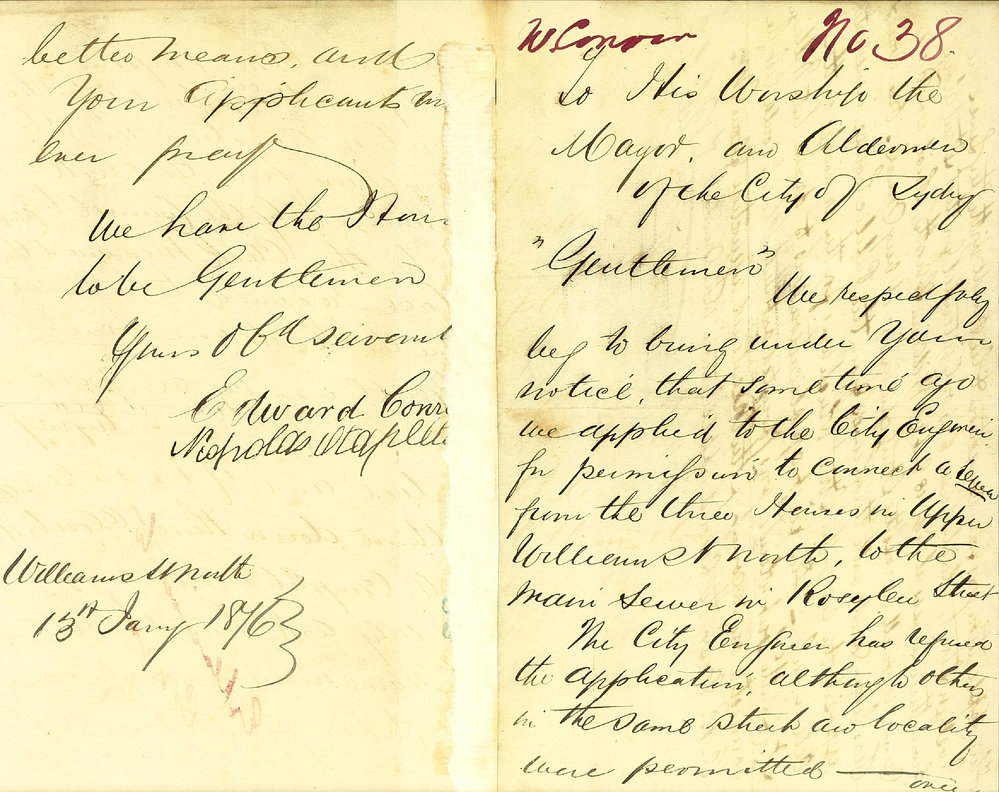 better means, and
Your Applicants
ever pray
We have the Hon
to be Gentlemen
Yours Obd servant
Edward Conr
Nicholas Staplet
Williams St North
13th Jany 1876
No. 38.
To His Worship the
Mayor, and Aldermen
of the City of Sydny
"Gentlemen"
We respectfuly
beg to bring under Your
notice, that sometime ago
we applied to the City Engineer
for permission to connect a sewer
from the three Houses in Upper
William St North, to the
main Sewer in Roseylen Street
The City Engineer has refused
the Application, although others
in the same street and locality
were permitted —
over